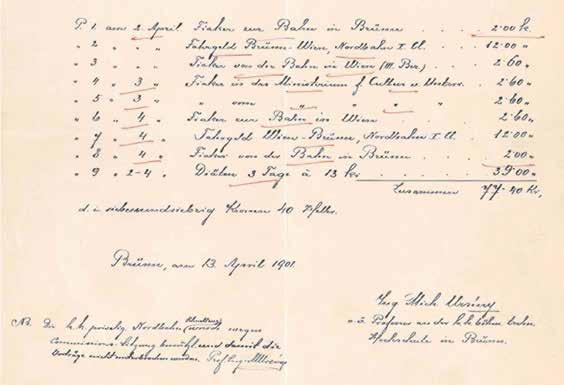 P. 1 am 2. April. Fiaker zur Bahn in Brünn . . . . 2·00 K.
" 2 " " " Fahrgeld Brünn-Wien, Nordbahn I. Cl. . . . 12·00 "
" 3 " " " Fiaker von der Bahn in Wien (III. Bez.) . . . 2·60 "
" 4 " 3 " Fiaker in das Ministerium f. Cultus u. Unterr. . . 2·60 "
" 5 " 3 " " vom " " . . 2·60 "
" 6 " 4 " Fiaker zur Bahn in Wien . . . . 2·60 "
" 7 " 4 " Fahrgeld Wien-Brünn, Nordbahn I. Cl. . . . 12·00 "
" 8 " 4 " Fiaker von der Bahn in Brünn . . . . 2·00 "
" 9 " 2-4 " Diäten 3 Tage à 13 kr 39·00 "
Zusammen 77·40 Kr.
d. i. siebenundsiebzig Kronen 40 Heller.
Brünn, am 13. April 1901.
Ing. Mich. Ursíny
o. ö. Professor an der k. k. böhm. techn.
Hochschule in Brünn.
NB. Die k. k. privileg. Nordbahn wurde wegen
Commissions-Sitzung benützt und damit die
Vorträge nicht unterbrochen werden. Prof. Ing. M. Ursíny